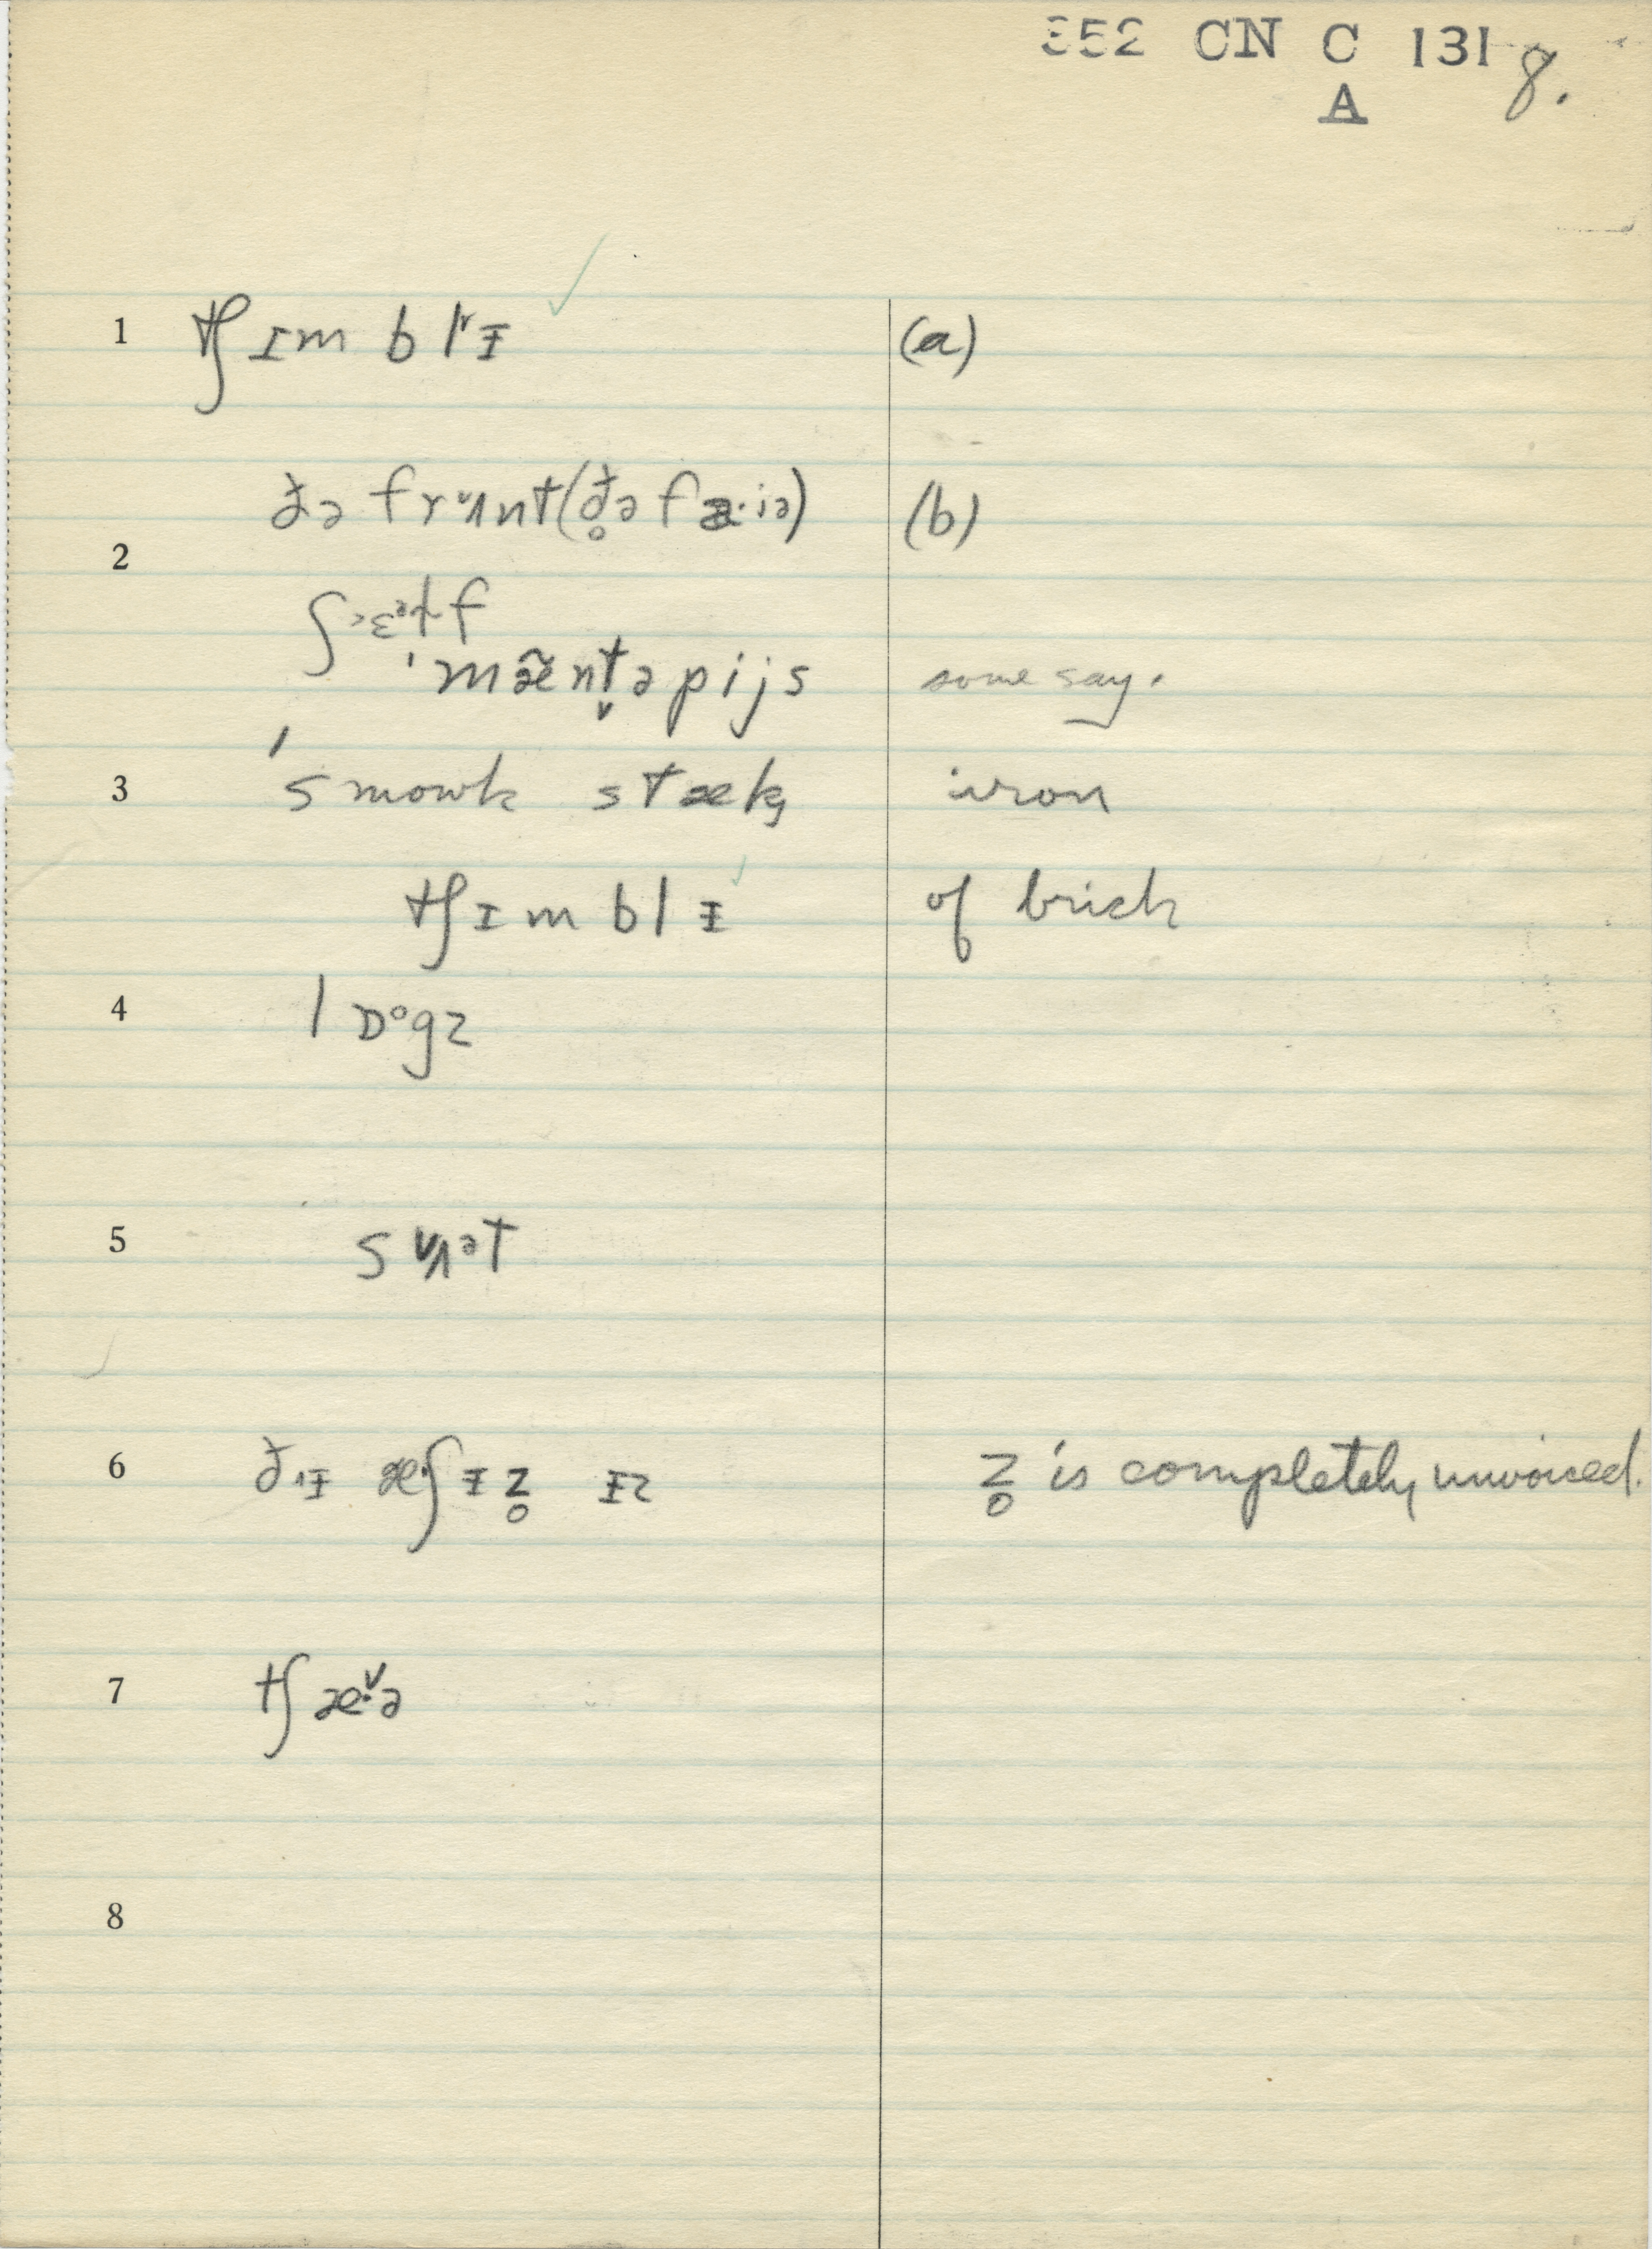 352 CN C 131 8.
A
1 tʃ ɪm b lrᵻ (a)
ðə frʌnt (ð̥ə fa·iə) (b)
2
ʃ>ɛəɫf
ˈmæ̃nt̬əpijs some say.
3 ˈsmowk stæk, iron
tʃɪmblᵻ of brick
4 lɒᵒgz
5 sʌət
6 ðɪᵻ æ·ʃᵻz̥ ᵻz z̥ is completely unvoiced.
7 tʃæ·və
8